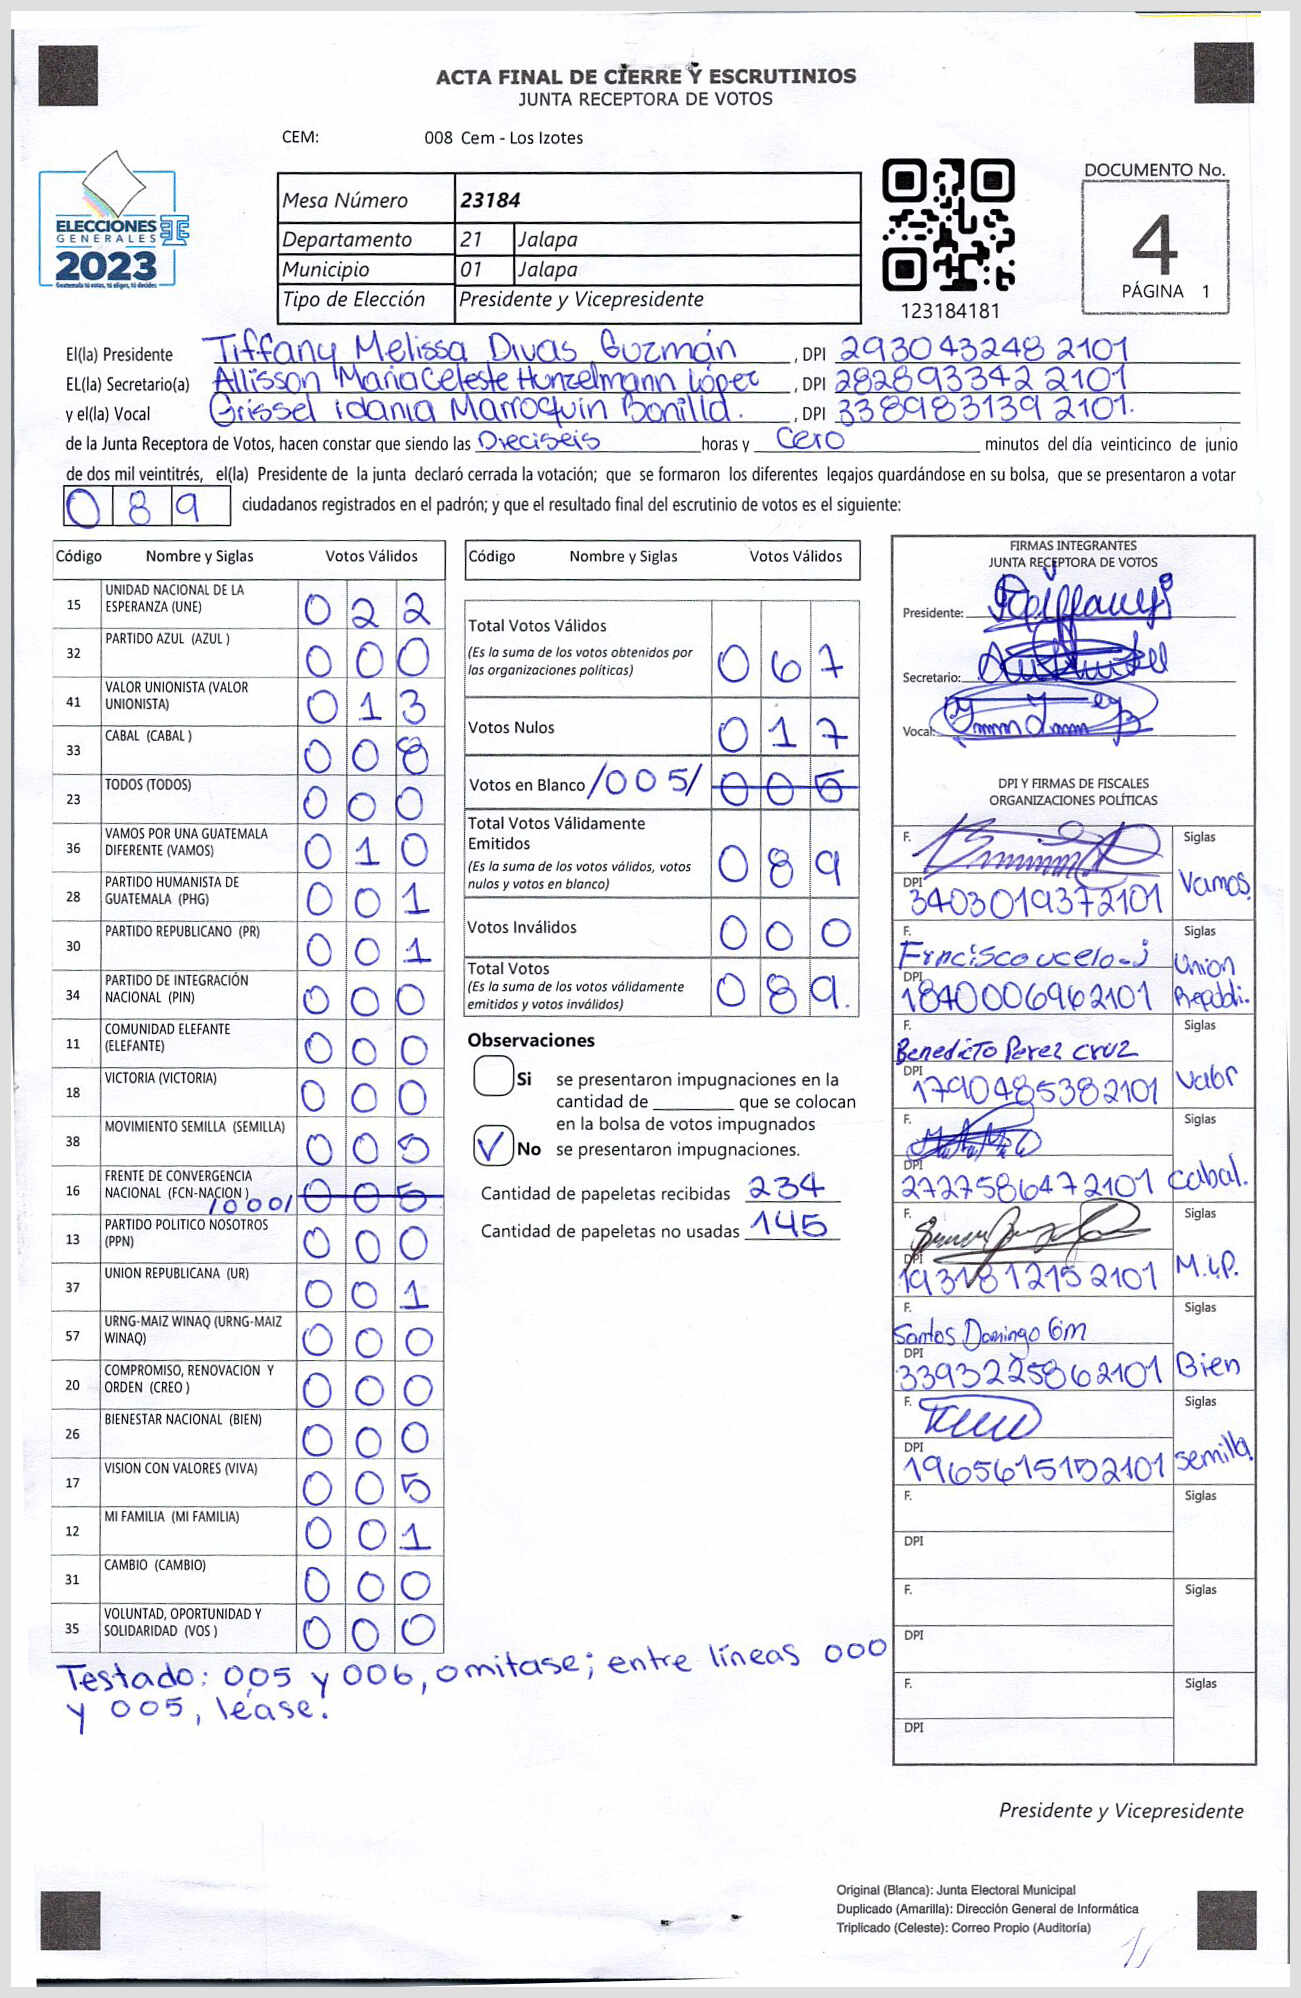 ACTA FINAL DE CIERRE Y ESCRUTINIOS
JUNTA RECEPTORA DE VOTOS
CEM: 008 Cem - Los Izotes
ELECCIONES
GENERALES
2023
Guatemala tú votas, tú eliges, tú decides
Mesa Número 23184
Departamento 21 Jalapa
Municipio 01 Jalapa
Tipo de Elección Presidente y Vicepresidente
123184181
DOCUMENTO No.
4
PÁGINA 1
El(la) Presidente Tiffany Melissa Divas Guzmán, DPI 293043248 2101
EL(la) Secretario(a) Allisson María Celeste Hunzelmann López, DPI 282893342 2101
y el(la) Vocal Grissel idania Marroquin Bonilla., DPI 338983139 2101.
de la Junta Receptora de Votos, hacen constar que siendo las Dieciseis horas y Cero minutos del día veinticinco de junio
de dos mil veintitrés, el(la) Presidente de la junta declaró cerrada la votación; que se formaron los diferentes legajos guardándose en su bolsa, que se presentaron a votar
089 ciudadanos registrados en el padrón; y que el resultado final del escrutinio de votos es el siguiente:
Código Nombre y Siglas Votos Válidos
15 UNIDAD NACIONAL DE LA ESPERANZA (UNE) 022
32 PARTIDO AZUL (AZUL ) 000
41 VALOR UNIONISTA (VALOR UNIONISTA) 013
33 CABAL (CABAL ) 008
23 TODOS (TODOS) 000
36 VAMOS POR UNA GUATEMALA DIFERENTE (VAMOS) 010
28 PARTIDO HUMANISTA DE GUATEMALA (PHG) 001
30 PARTIDO REPUBLICANO (PR) 001
34 PARTIDO DE INTEGRACIÓN NACIONAL (PIN) 000
11 COMUNIDAD ELEFANTE (ELEFANTE) 000
18 VICTORIA (VICTORIA) 000
38 MOVIMIENTO SEMILLA (SEMILLA) 005
16 FRENTE DE CONVERGENCIA NACIONAL (FCN-NACION ) /000/ 005
13 PARTIDO POLITICO NOSOTROS (PPN) 000
37 UNION REPUBLICANA (UR) 001
57 URNG-MAIZ WINAQ (URNG-MAIZ WINAQ) 000
20 COMPROMISO, RENOVACION Y ORDEN (CREO ) 000
26 BIENESTAR NACIONAL (BIEN) 000
17 VISION CON VALORES (VIVA) 005
12 MI FAMILIA (MI FAMILIA) 001
31 CAMBIO (CAMBIO) 000
35 VOLUNTAD, OPORTUNIDAD Y SOLIDARIDAD (VOS ) 000
Testado: 005 y 006, omitase; entre líneas 000
y 005, léase.
Código Nombre y Siglas Votos Válidos
Total Votos Válidos 067
(Es la suma de los votos obtenidos por
las organizaciones políticas)
Votos Nulos 017
Votos en Blanco /005/ 006
Total Votos Válidamente
Emitidos 089
(Es la suma de los votos válidos, votos
nulos y votos en blanco)
Votos Inválidos 000
Total Votos 089.
(Es la suma de los votos válidamente
emitidos y votos inválidos)
Observaciones
Si se presentaron impugnaciones en la
cantidad de ________ que se colocan
en la bolsa de votos impugnados
No se presentaron impugnaciones.
Cantidad de papeletas recibidas 234
Cantidad de papeletas no usadas 145
FIRMAS INTEGRANTES
JUNTA RECEPTORA DE VOTOS
Presidente:
Secretario:
Vocal:
DPI Y FIRMAS DE FISCALES
ORGANIZACIONES POLÍTICAS
F. Siglas
DPI 3403019372101 Vamos
F. Frncisco ucelo-j Siglas
DPI 1840006962101 Union Republi.
F. Benedicto Perez cruz Siglas
DPI 1790485382101 Valor
F. Siglas
DPI 2727586472101 Cabal.
F. Siglas
DPI 1931812152101 M.L.P.
F. Santos Domingo Siglas
DPI 3393225862101 Bien
F. Siglas
DPI 1965615152101 semilla
F. Siglas
DPI
F. Siglas
DPI
F. Siglas
DPI
Presidente y Vicepresidente
Original (Blanca): Junta Electoral Municipal
Duplicado (Amarilla): Dirección General de Informática
Triplicado (Celeste): Correo Propio (Auditoría)